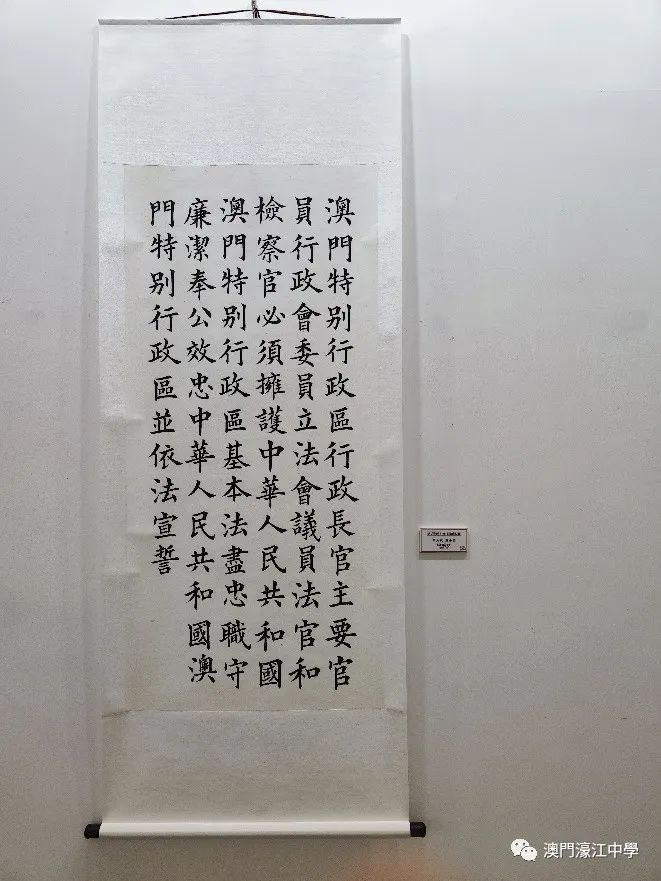 澳門特別行政區行政長官主要官
員行政會委員立法會議員法官和
檢察官必須擁護中華人民共和國
澳門特別行政區基本法盡忠職守
廉潔奉公效忠中華人民共和國澳
門特別行政區並依法宣誓
澳門濠江中學